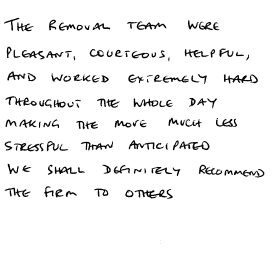 THE REMOVAL TEAM WERE
PLEASANT, COURTEOUS, HELPFUL,
AND WORKED EXTREMELY HARD
THROUGHOUT THE WHOLE DAY
MAKING THE MOVE MUCH LESS
STRESSFUL THAN ANTICIPATED
WE SHALL DEFINITELY RECOMMEND
THE FIRM TO OTHERS